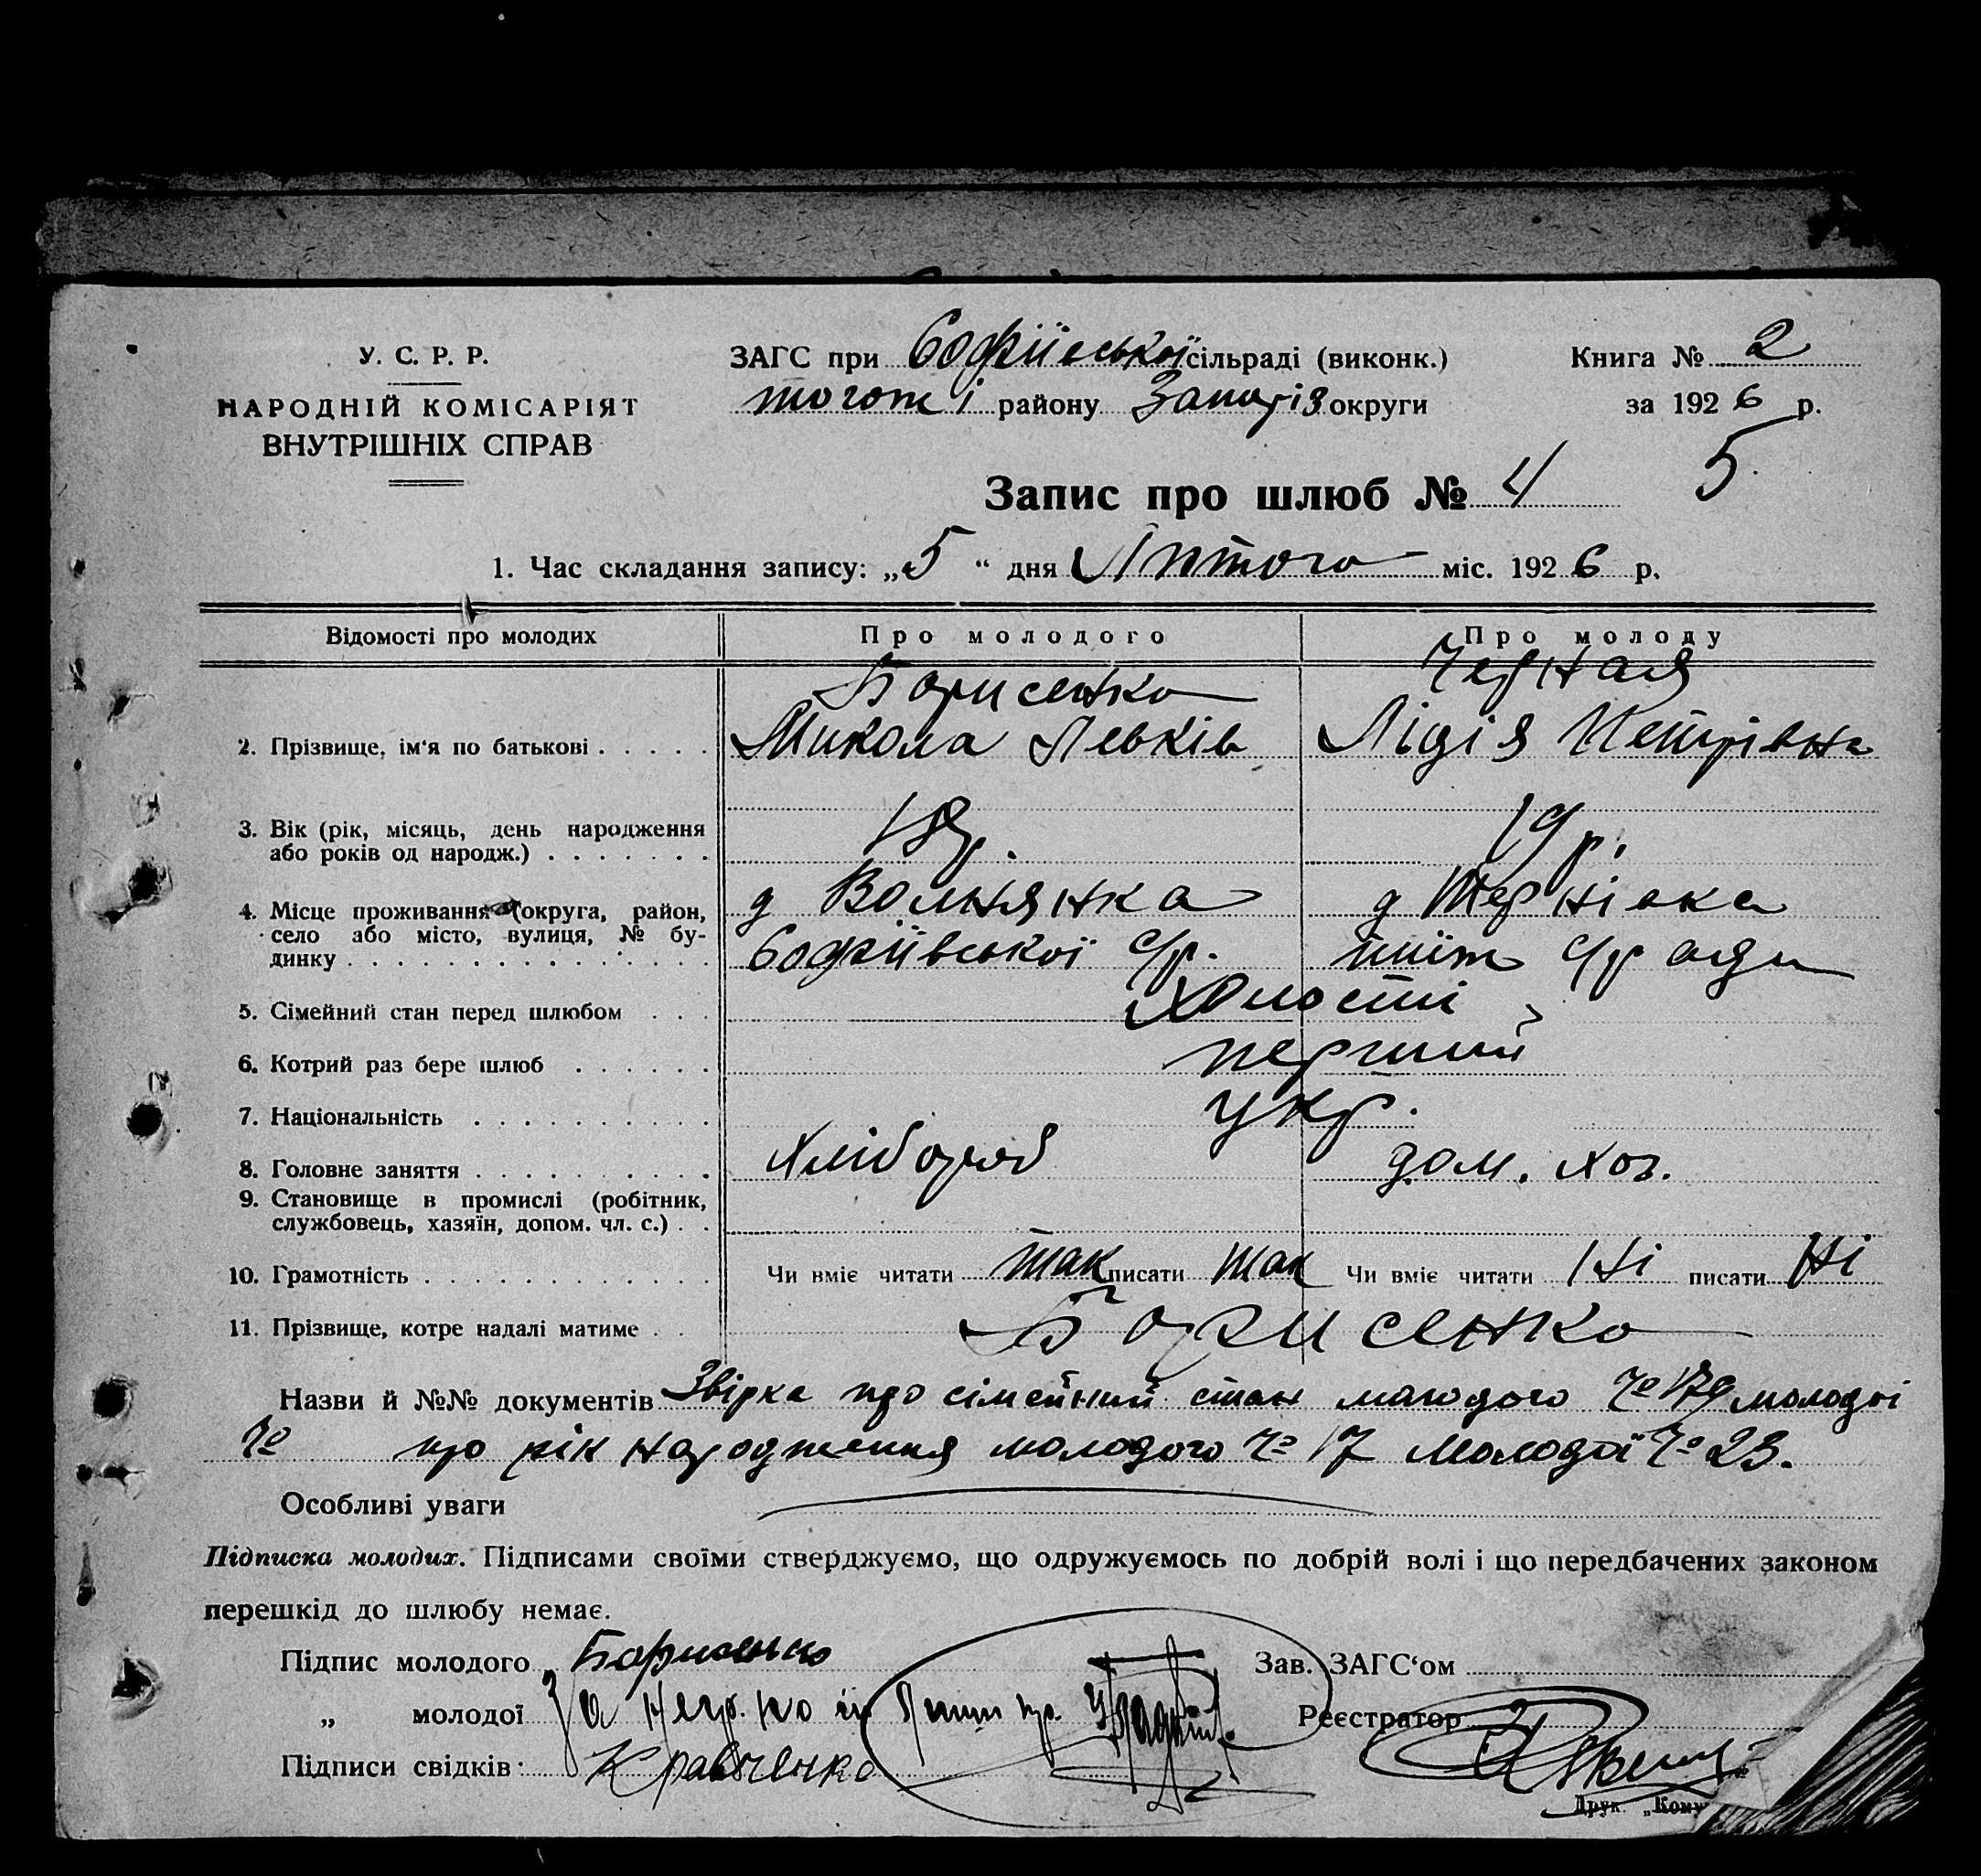 У. С. Р. Р.
НАРОДНІЙ КОМІСАРІЯТ
ВНУТРІШНІХ СПРАВ
ЗАГС при Софіївської сільраді (виконк.)
тогож району Запоріз округи
Книга № 2
за 1926 р.
5
Запис про шлюб № 4
1. Час складання запису: „5“ дня Лютого міс. 1926 р.
Відомості про молодих Про молодого Про молоду
Борисенко Черная
2. Прізвище, ім‘я по батькові Микола Левків Лідія Петрівна
3. Вік (рік, місяць, день народження
або років од народж.) 18р. 19 р.
4. Місце проживання (округа, район, д Вольнянка д Тернівка
село або місто, вулиця, № бу-
динку Софіївської с/р. с/ради
5. Сімейний стан перед шлюбом Холості
6. Котрий раз бере шлюб перший
7. Національність укр.
8. Головне заняття Хлібороб дом. хоз.
9. Становище в промислі (робітник,
службовець, хазяїн, допом. чл. с.)
10. Грамотність Чи вміє читати так писати так Чи вміє читати Ні писати Ні
11. Прізвище, котре надалі матиме Борисенко
Назви й №№ документів Звірка про сімейний стан молодого № молодої
№ про рік народження молодого № 17 молодої № 23.
Особливі уваги
Підписка молодих. Підписами своїми стверджуємо, що одружуємось по добрій волі і що передбачених законом
перешкід до шлюбу немає.
Підпис молодого Борисенко
Зав. ЗАГС‘ом
„ молодої За негр.
Реєстратор
Підписи свідків: Кравченко
Друк. „Кому